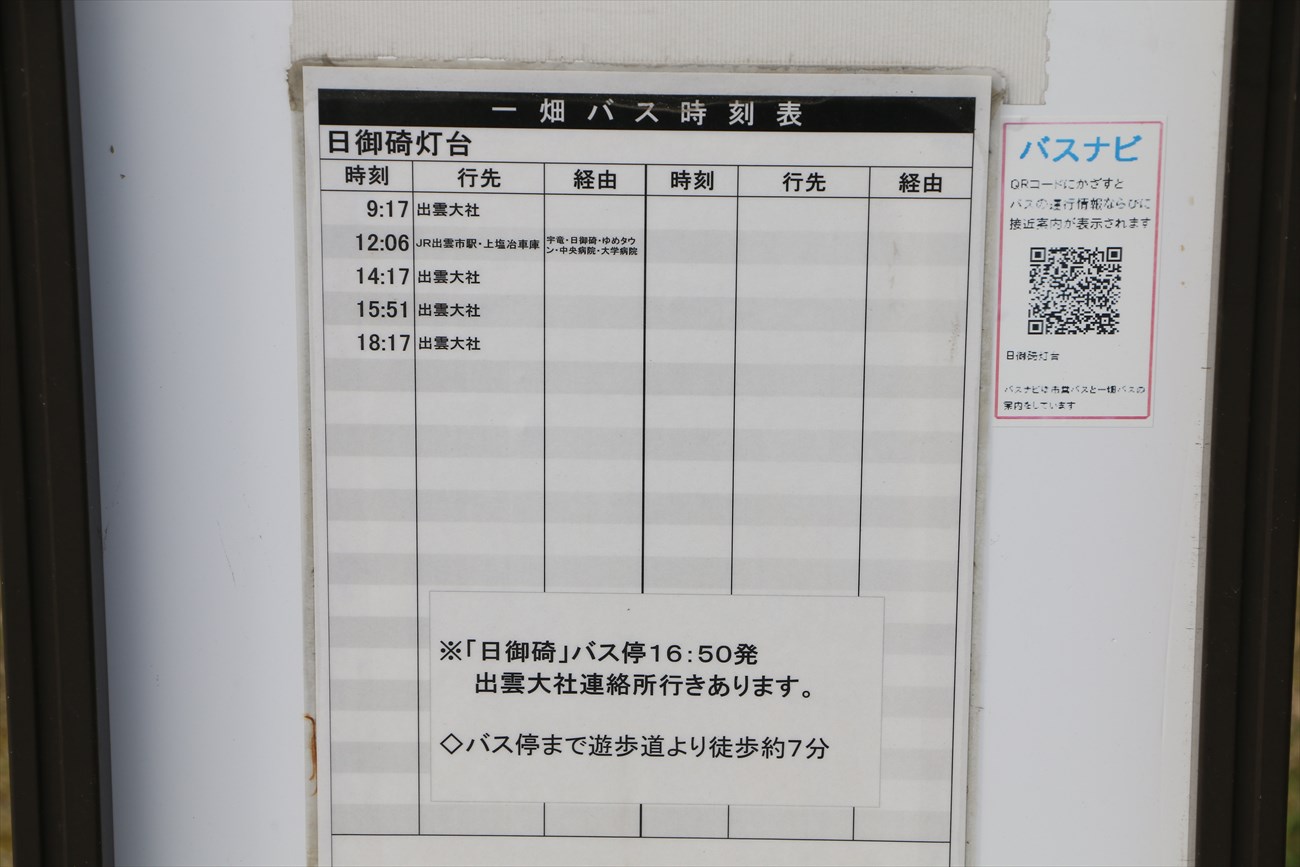 一畑バス時刻表
日御碕灯台
時刻 行先 経由 時刻 行先 経由
9:17 出雲大社
12:06 JR出雲市駅・上塩冶車庫 宇竜・日御碕・ゆめタウ
ン・中央病院・大学病院
14:17 出雲大社
15:51 出雲大社
18:17 出雲大社
※「日御碕」バス停16:50発
出雲大社連絡所行きあります。
◇バス停まで遊歩道より徒歩約7分
バスナビ
QRコードにかざすと
バスの運行情報ならびに
接近案内が表示されます
日御碕灯台
バスナビは市営バスと一畑バスの
案内をしています